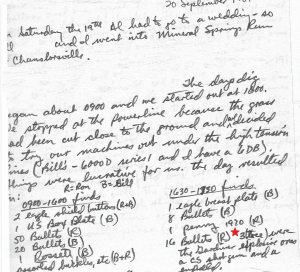 20 September 19
n Saturday the 19th Al had to go to a wedding - so
ll and I went into Mineral Springs Run
Chancellorsville.
The days dig
egan about 0900 and we started out at 1800.
e stopped at the powerline because the grass
ad been cut close to the ground and decided
to try our machines out under the high tension
ines (Bill's - 6000D series 1 and I have a 6DB).
things were lucrative for us. The day resulted
in: R=Ron B=Bill
0900-1600 finds
2 eagle shield button (R+B)
1 US Box Plate (B)
50 Bullets (R)
20 Bullets (B)
1 Rosette (B)
assorted buckles, etc (B+R)
1630-1830 finds
1 eagle breast plate (B)
8 Bullets (B)
1 penny 1920 (R)
16 Bullets (R) - these were
the Gardner explosive ones
a CS shotgun and a